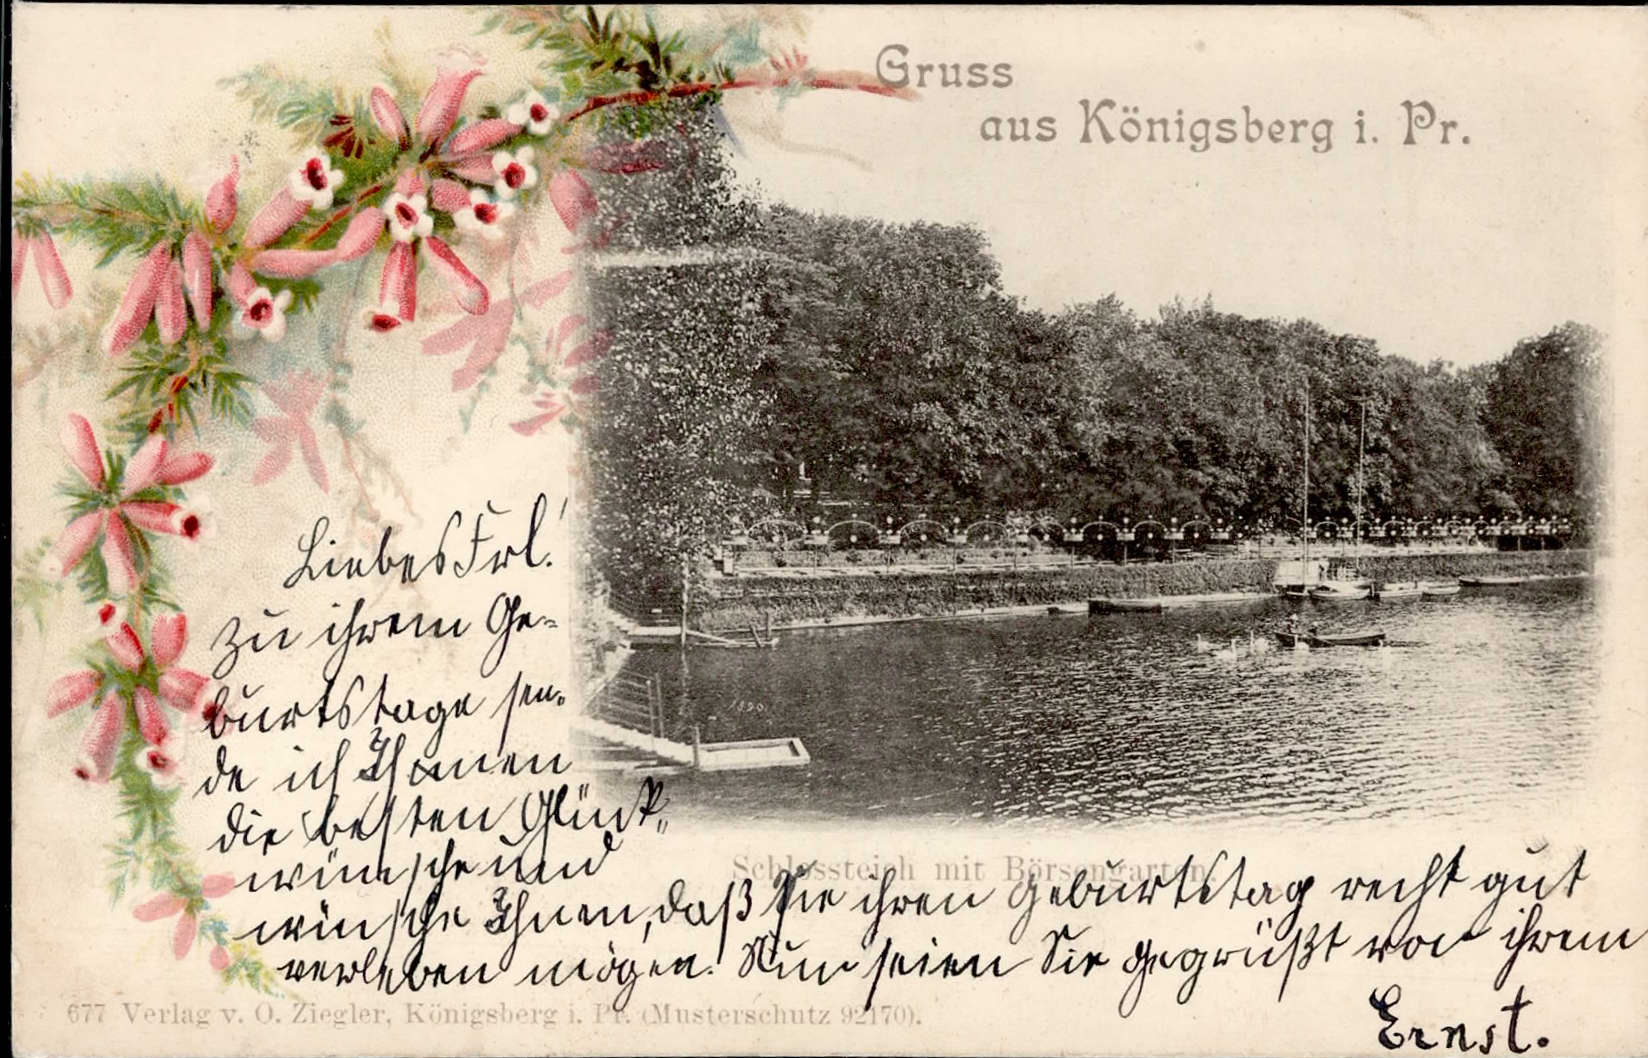 Gruss
aus Königsberg i. Pr.
Liebes Frl.!
zu ihrem Ge-
burtstage sen-
de ich Ihnen
die besten Glück-
wünsche und
wünsche Ihnen, daß Sie ihren Geburtstag recht gut
verleben mögen. Nun seien Sie gegrüßt von ihrem
Ernst.
1890
Schlossteich mit Börsengarten.
677 Verlag v. O. Ziegler, Königsberg i. Pr. (Musterschutz 92170).